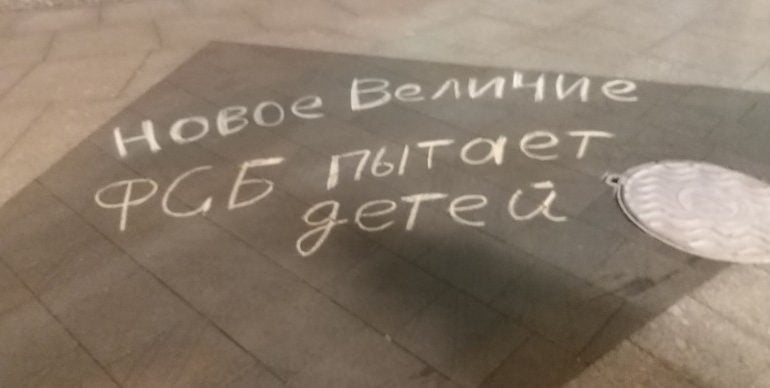 Новое Величие
ФСБ пытает
детей